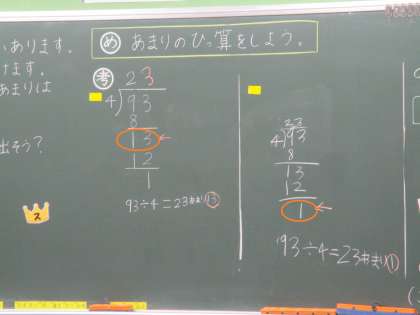 あります。
ます。
あまりは
出そう?
ス
め あまりのひっ算をしよう。
考
23
4)93
8
13
12
1
93÷4=23あまり13
23
4)93
8
13
12
1
93÷4=23あまり1